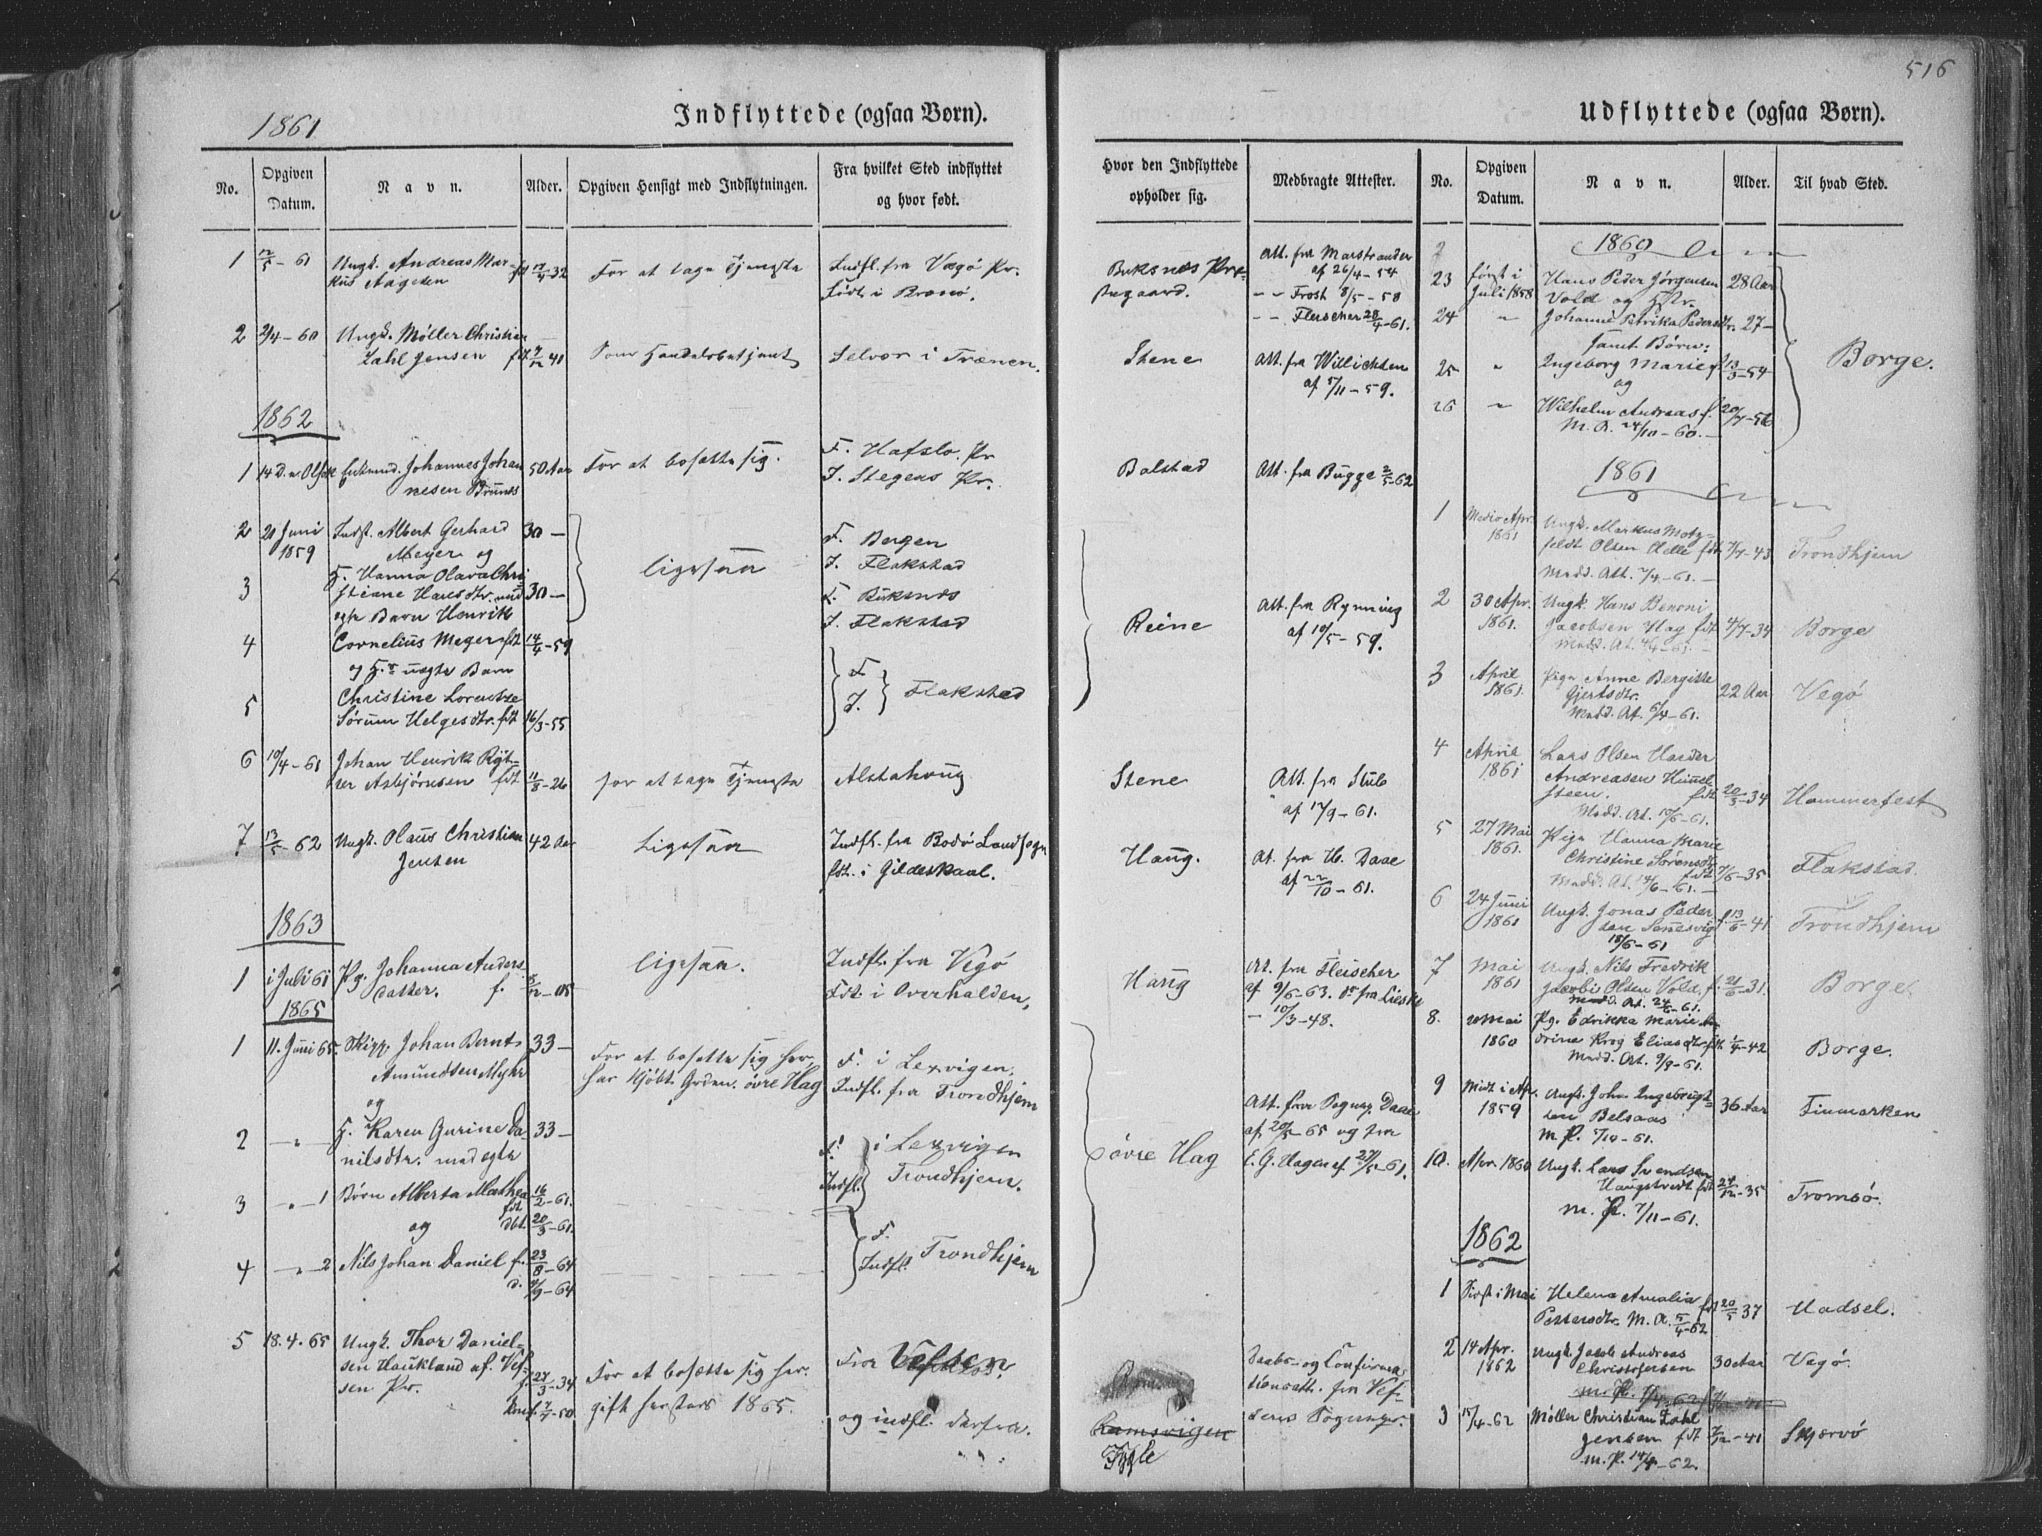 516
1861
Indflyttede (ogsaa Børn).
No.
Opgiven Datum.
Navn.
Alder.
Opgiven Hensigt med Indflytningen.
Fra hvilket Sted indflyttet og hvor født.
1 12/5-61 Ungk. Andreas Mar- 17/4-32 For at tage Tjeneste Indfl. fra Vegø Pr.
kus Aagesen Født i Brønø.
2 2/4-60 Ungk. Møller Christian
Zahl Jensen fdt 7/12 41 Som Handelsbetjent Selvær i Trænen.
1862
1 Enkemd. Johannes Johan 50 Aar For at bosætte sig. F. Hafslo Pr
nesen Bruns I. Stegens Pr.
2 21 Juni Indst. Albert Gerhard 30 - F. Bergen
1859 Meyer og ligesaa I. Flakstad
3 H. Hanna Olava Chri F. Buksnes
stiane Hansdtr. med 30 - I. Flakstad
egte Barn Henrik
4 Cornelius Meyer fdt 14/4-59
og H. uægte Barn F.
5 Christine Lorentze I. Flakstad
Sørum Helgesdtr. fdt 16/3-55
6 10/4-61 Johan Henrik
Asbjørnsen fdt 11/8-26 for at tage Tjeneste Alstahoug
7 13/5-62 Ungk. Olaus Christian 42 Aar Ligesaa Indfl. fra Bodø Landsogn
Jensen fdt. i Gildeskaal.
1863
1 i Juli 61 Pg. Johanna Anders ligesaa. Indfl. fra Vegø
datter. f. Fdt i Overhalden.
1865
1 11. Juni 65 Johan Bernt 33 - For at bosætte sig her, F. i Lexvigen.
Amundsen Myhr har kjöbt Grden øvre Hag Indfl. fra Trondhjem
og
2 - " - H. Karen Gurine Da 33 - F. i Lexvigen
nilsdtr. med egte Indfl. Trondhjem.
3 - " - 1 Børn Alberta Mathea 16/2-61.
og fdt dbt. 20/3-61. F.
4 - " - 2 Nils Johan Daniel f. 23/8-64 Indfl. Trondhjem
d. 4/9-64
5 18.4.65 Ungk. Thor Daniel- Fra Vefsen.
sen Haukland af Vef- f. 27/3-34 For at bosætte sig her.
sen Pr. gift 1865. og indfl. derfra.
Hvor den Indflyttede opholder sig.
Medbragte Attester.
Buksnes Pre- Att. fra Marstrander
stegaard. af 26/4-54
- - Frost 8/5-58
- - Fleischer 28/4-61.
Stene Att. fra Willichsen
af 5/11-59.
Balstad Att. fra Bugge 2/5-62
Reine Att. fra Rynning
af 10/5-59.
Stene Att. fra Stub
af 17/9-61.
Haug. At. fra H. Daae
af 22/10-61.
Haug At. fra Fleischer
af 9/6-63.
10/3-48.
øvre Hag Att. fra Sognepr. Daae
af 20/5-65 og fra
E. G. Hagen af
Daabs- og Confirma
tionsatt. fra Vef-
sens Sognepr.
Ramsvigen
Fygle
Udflyttede (ogsaa Børn).
No.
Opgiven Datum.
Navn.
Alder.
Til hvad Sted.
1860
23 først i Hans Peder Jørgensen 28 Aar
Juli 1858 Vold og Hstr.
24 " Johanne Petrika Pedersdtr. 27 -
samt Børn:
25 " Ingeborg Marie f. 13/3-54 Borge.
og
26 " Wilhelm Andreas f. 20/7-56
M. A. 24/10-60.
1861
1 Medio Apr. Ungk. Markus Motz-
1861 feldt Olsen Helle fdt 7/7-43 Trondhjem
Medd. Att. 7/4-61.
2 30 Apr. Ungk. Hans Benoni
1861. Jacobsen Hag fdt 4/7-34 Borge
Medd. At. 4/4-61.
3 April Pige Anne Bergitte
1861. Gjertsdtr. 22 Aar Vegø
Medd. At. 6/4-61.
4 April Lars Olsen Harder
1861 Andreasen Himmel
steen. fdt 20/3-34 Hammerfest
Medd. At. 17/6-61.
5 27 Mai Pige Hanna Marie
1861. Christine Sørensdtr fdt 7/6-35 Flakstad
Medd. At. 14/6-61.
6 24 Juni Ungk. Jonas Peder
1861 sen f. 13/6-41 Trondhjem
15/6-61
7 Mai Ungk. Nils Fredrik
1861 Jacobi Olsen Vold. f. 21/6-31. Borge.
Medd. At. 24/6-61.
8. 20 Mai Pg. Edrikka Marie An
1860 drine Krog Eliasdtr. fdt 1/4-42 Borge.
Medd. At. 9/9-61.
9 Midt i Apr. Ungk. Johan Ingebrigt-
1859 sen Belsaas 36 Aar Finmarken
M. A. 5/10-61.
10. Apr. 1860 Ungk. Lars Svendsen
Haugstvedt fdt 24/12-35 Tromsø.
M. A. 7/11-61.
1862
1 Sidst i Mai Helena Amalia
Pettersdtr. M. A. 5/4-62 fdt 20/5 37 Hadsel.
2 14 Apr. Ungk. Jacob Andreas
1862 Christophersen 30 Aar Vegø.
3 15/4-62 Møller Christian Zahl
Jensen fdt 7/12-41 Skjærvø
M. A. 14/4-62.